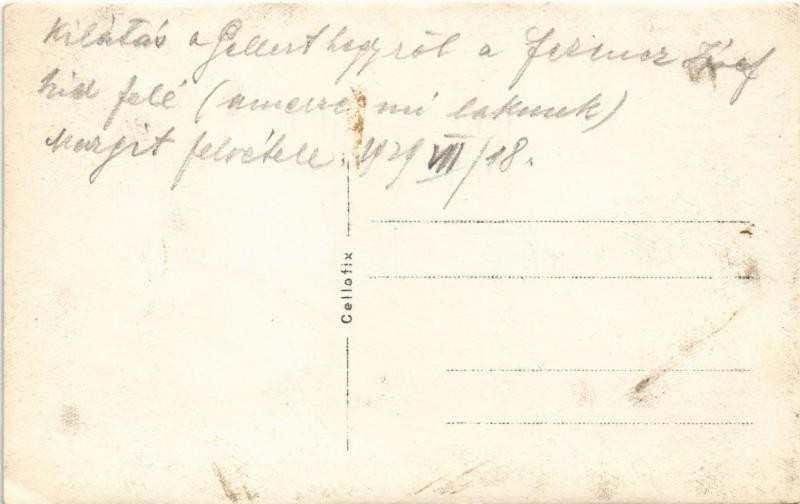 Kilátás a Gellerthegyről a Ferencz József
hid felé (amerre mi lakunk)
Margit felvétele 1929 VII/18.
Cellofix